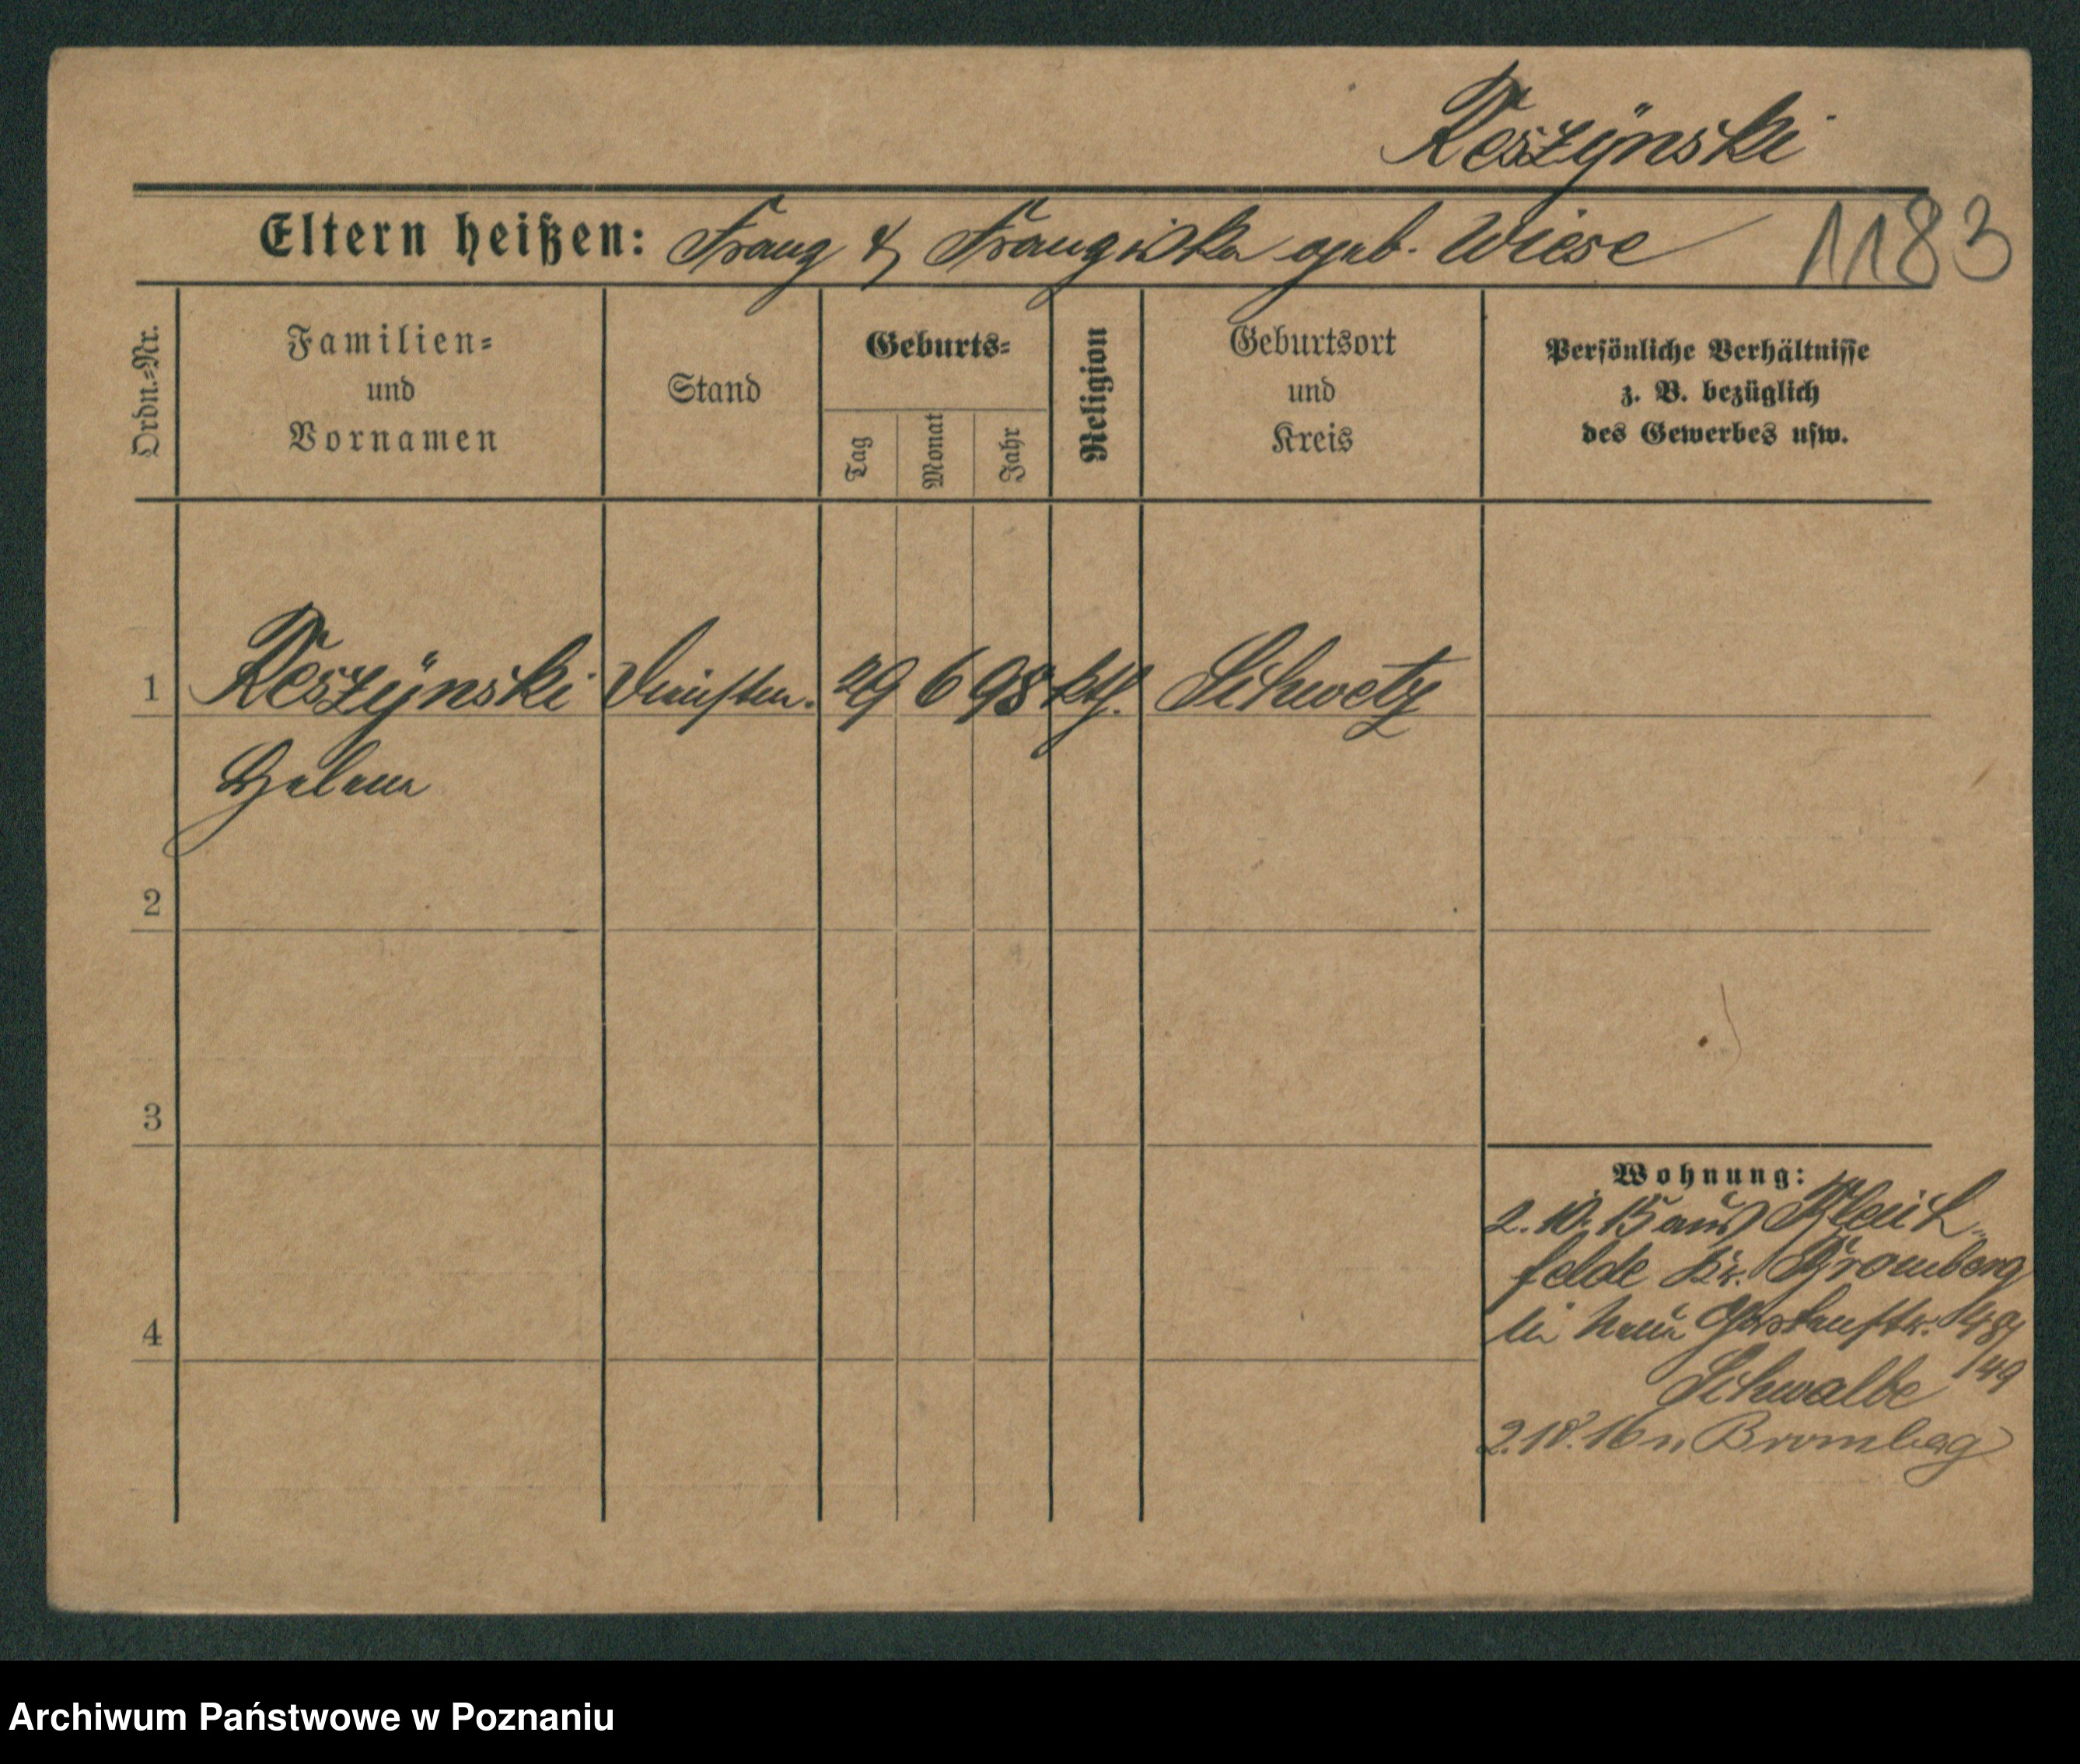 Reszÿnski
Eltern heißen: Franz & Franziska geb. Wiese 1183
Ordn.=Nr.
Familien=
und
Vornamen
Stand
Geburts=
Tag
Monat
Jahr
Religion
Geburtsort
und
Kreis
Persönliche Verhältnisse
z. B. bezüglich
des Gewerbes usw.
1 Reszÿnski 29 6 98 kth. Schwetz
Helene
2
3
4
Wohnung:
2. 10. 15 aus Bleich
felde Kr. Bromberg
148
Schwalbe 149
2.18.16 n. Bromberg
Archiwum Państwowe w Poznaniu